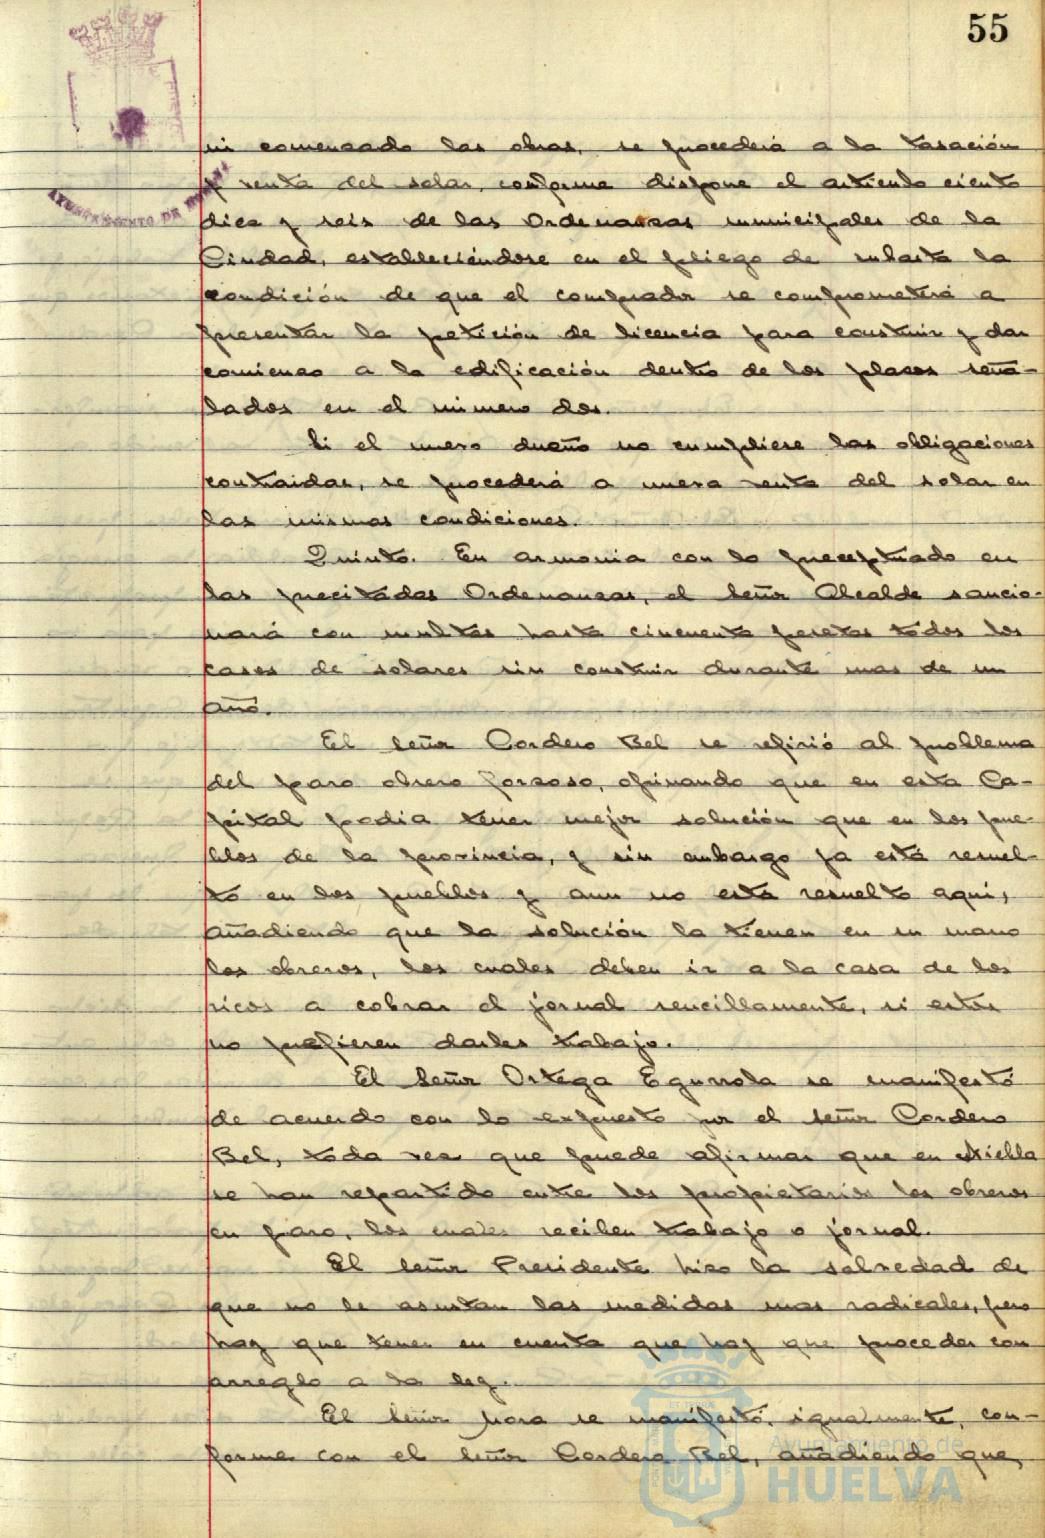 55
AYUNTAMIENTO DE HUELVA
ni comenzado las obras, se procederá a la tasación
y venta del solar, conforme dispone el artículo ciento
diez y seis de las Ordenanzas municipales de la
Ciudad, estableciéndose en el pliego de subasta la
condición de que el comprador se comprometerá a
presentar la petición de licencia para construir y dar
comienzo a la edificación dentro de los plazos seña-
lados en el número dos.
Si el nuevo dueño no cumpliese las obligaciones
contraídas, se procederá a nueva venta del solar en
las mismas condiciones.
Quinto. En armonía con lo preceptuado en
las precitadas Ordenanzas, el Señor Alcalde sancio-
nará con multas hasta cincuenta pesetas todos los
casos de solares sin construir durante mas de un
año.
El Señor Cordero Bel se refirió al problema
del paro obrero forzoso, opinando que en esta Ca-
pital podía tener mejor solución que en los pue-
blos de la provincia, y sin embargo ya está resuel-
to en los pueblos y aun no está resuelto aquí,
añadiendo que la solución la tienen en su mano
los obreros, los cuales deben ir a la casa de los
ricos a cobrar el jornal sencillamente, si estos
no prefieren darles trabajo.
El Señor Ortega Egurrola se manifestó
de acuerdo con lo expuesto por el Señor Cordero
Bel, toda vez que puede afirmar que en Niebla
se han repartido entre los propietarios los obreros
en paro, los cuales reciben trabajo o jornal.
El Señor Presidente hizo la salvedad de
que no le asustan las medidas mas radicales, pero
hay que tener en cuenta que hay que proceder con
arreglo a la ley.
El Señor Mora se manifestó, igualmente, con-
forme con el Señor Cordero Bel, añadiendo que,
Ayuntamiento de
HUELVA